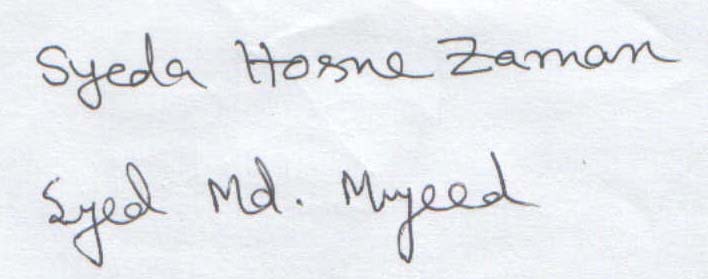 Syeda Hosne Zaman
Syed Md. Muyeed